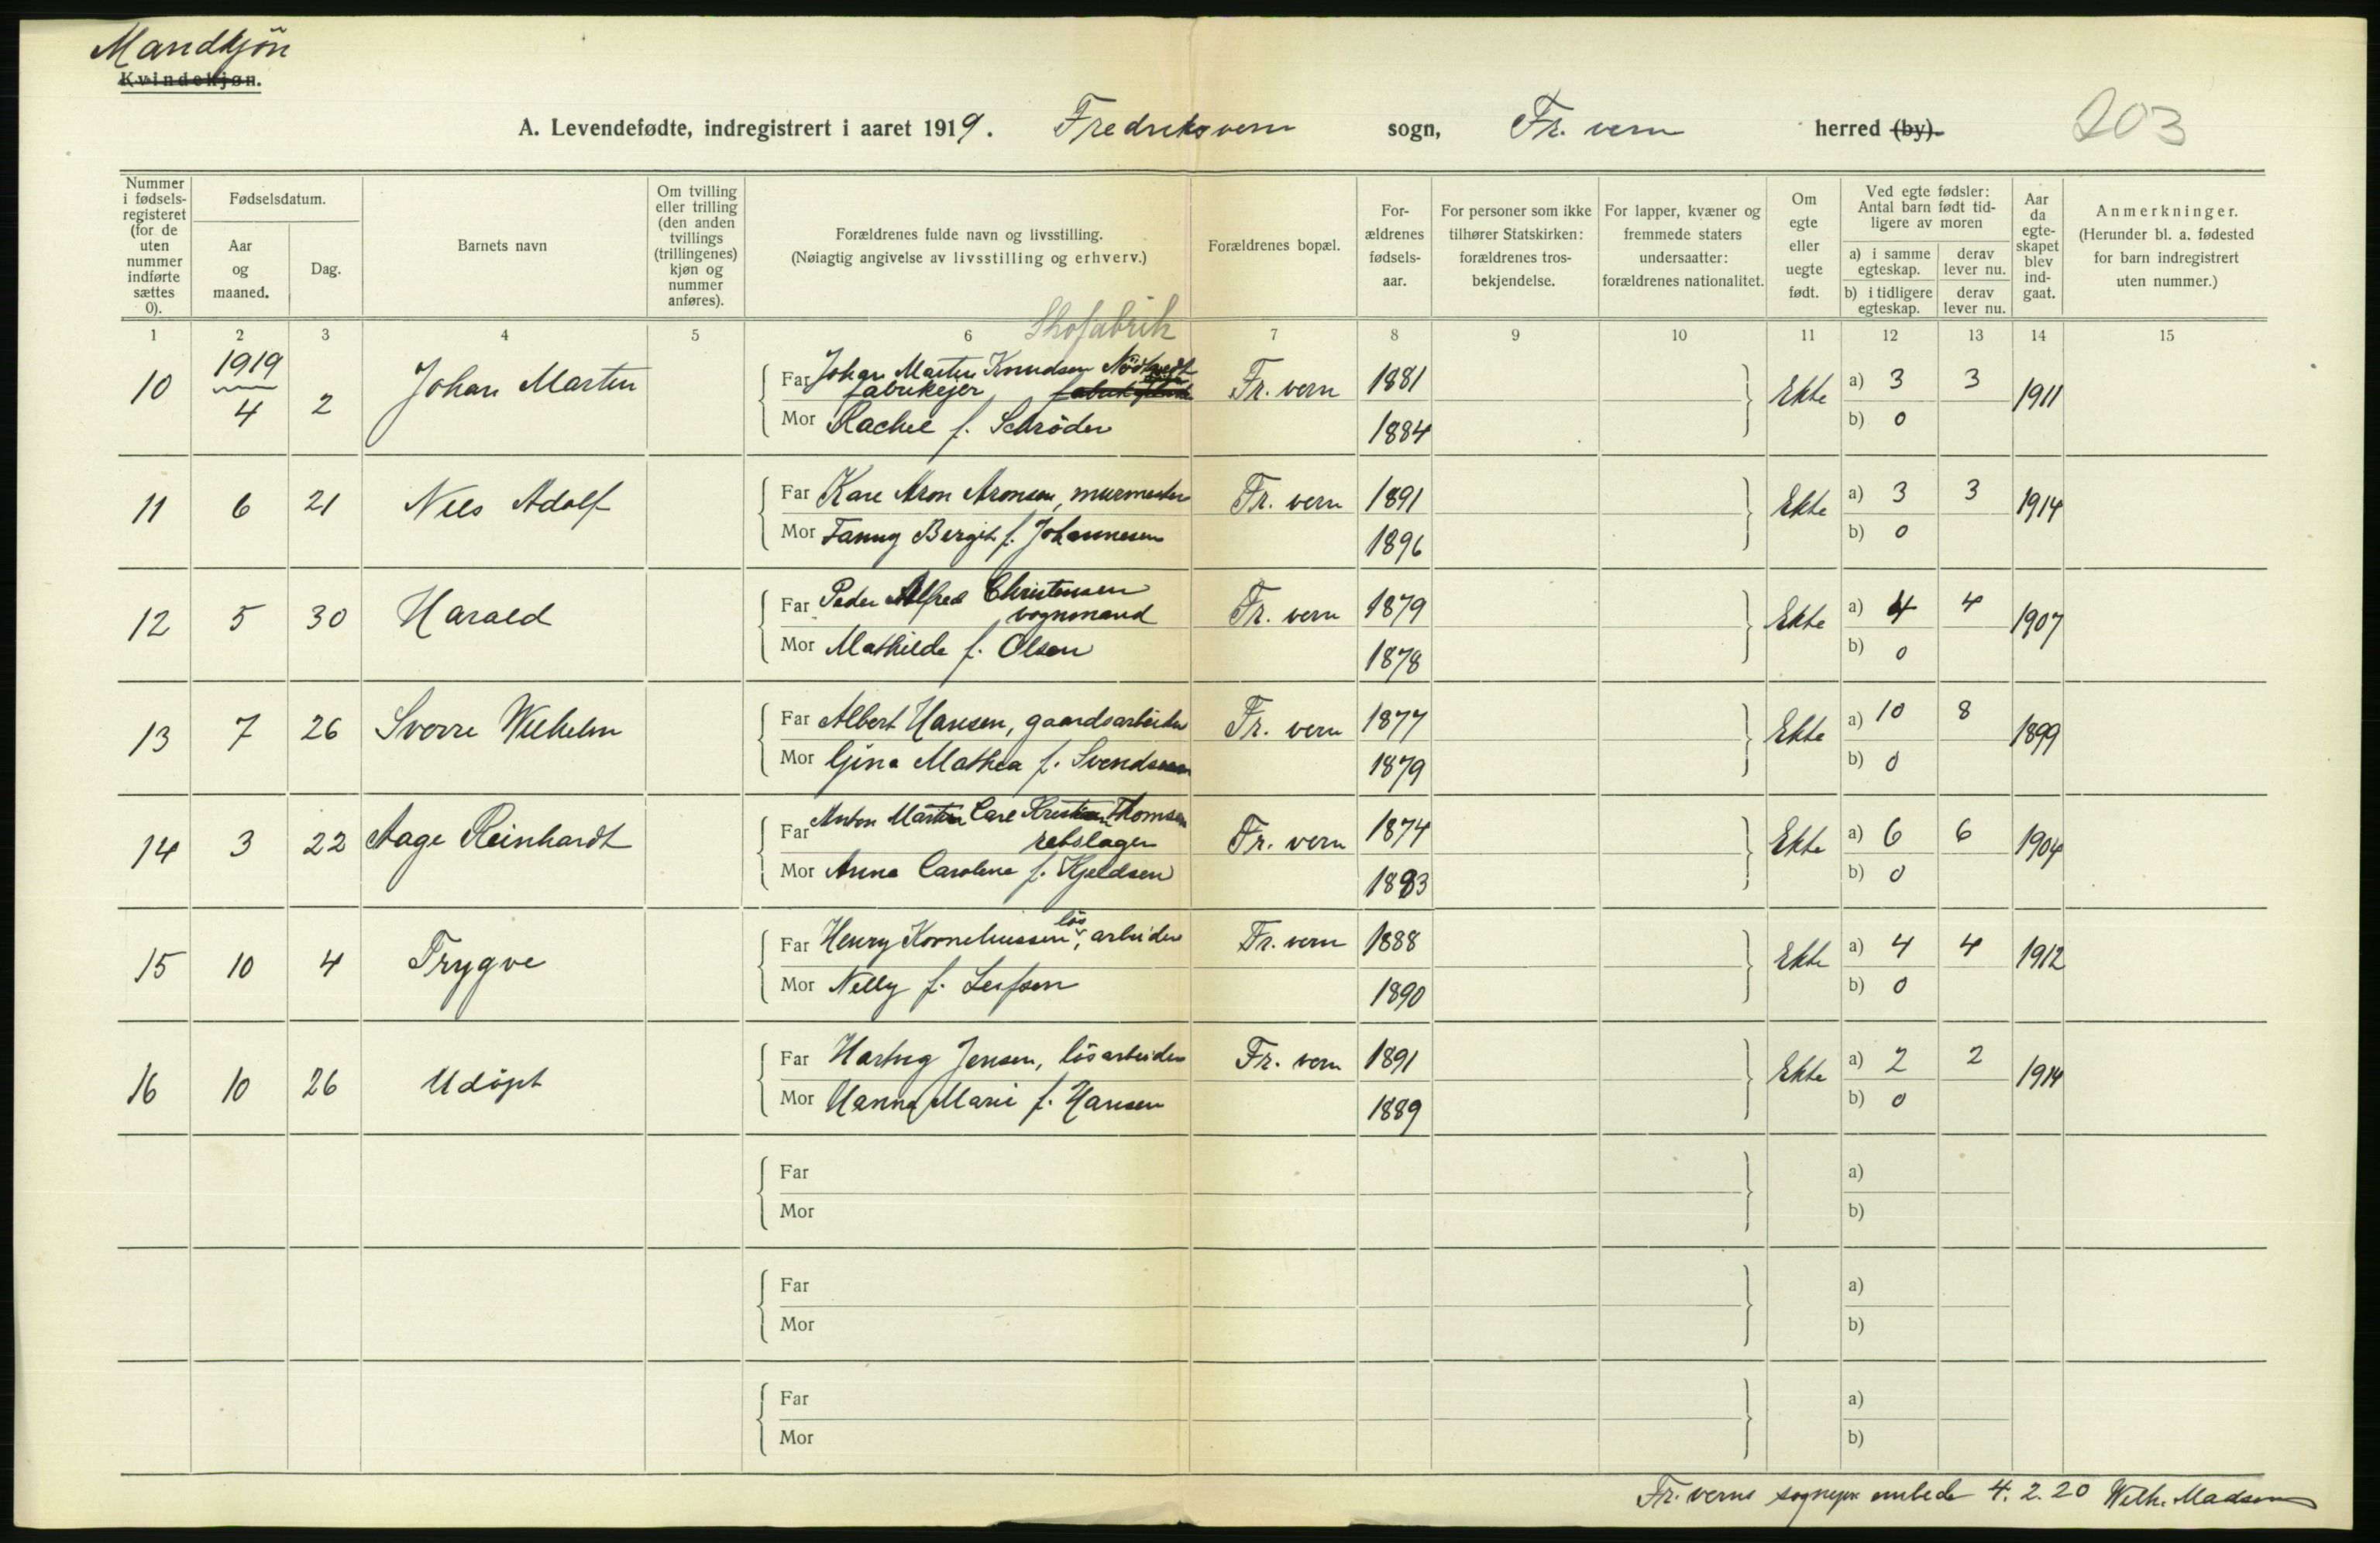 Mandkjön
Kvindekjøn.
A. Levendefødte, indregistrert i aaret 1919. Fredriksvern sogn, Fr. vern herred (by). 203
Nummer i fødselsregisteret (for de uten nummer indførte sættes 0).
Fødselsdatum.
Aar og maaned.
Dag.
Barnets navn
Om tvilling eller trilling (den anden tvillings (trillingenes) kjøn og nummer anføres).
Forældrenes fulde navn og livsstilling.
(Nøiagtig angivelse av livsstilling og erhverv.)
Forældrenes bopæl.
Forældrenes fødselsaar.
For personer som ikke tilhører Statskirken: forældrenes trosbekjendelse.
For lapper, kvæner og fremmede staters undersaatter: forældrenes nationalitet.
Om egte eller uegte født.
Ved egte fødsler: Antal barn født tidligere av moren
a) i samme egteskap. derav lever nu.
b) i tidligere egteskap. derav lever nu.
Aar da egteskapet blev indgaat.
Anmerkninger.
(Herunder bl. a. fødested for barn indregistrert uten nummer.)
Skofabrik
1 2 3 4 5 6 7 8 9 10 11 12 13 14 15
1919
10 4 2 Johan Martin Far Johan Martin Knudsen fabrikejer Fr. vern 1881 Ekte a) 3 3 1911
Mor Rachel f. Schrøder 1884 b) 0
11 6 21 Nils Adolf Far Karl Aron Aronsen, murmester Fr. vern 1891 Ekte a) 3 3 1914
Mor Fanny Bergit f. Johannesen 1896 b) 0
12 5 30 Harald Far Peder Alfred Christensen vognmand Fr. vern 1879 Ekte a) 4 4 1907
Mor Mathilde f. Olsen 1878 b) 0
13 7 26 Sverre Wilhelm Far Albert Hansen, gaardsarbeider Fr. vern 1877 Ekte a) 10 8 1899
Mor Gina Mathea f. Svendsen 1879 b) 0
14 3 22 Aage Reinhardt Far Anton Martin Carl Kristian Thomsen rebslager Fr. vern 1874 Ekte a) 6 6 1904
Mor Anna Caroline f. Kjeldsen 1883 b) 0
15 10 4 Trygve Far Henry Korneliussen, løsarbeider Fr. vern 1888 Ekte a) 4 4 1912
Mor Nelly f. Leifsen 1890 b) 0
16 10 26 Udöpt Far Hartvig Jensen, lösarbeider Fr. vern 1891 Ekte a) 2 2 1914
Mor Hanna Marie f. Hansen 1889 b) 0
Far a)
Mor b)
Far a)
Mor b)
Far a)
Mor b)
Fr. verns sognepr. embede 4. 2. 20 Wilh. Madsen